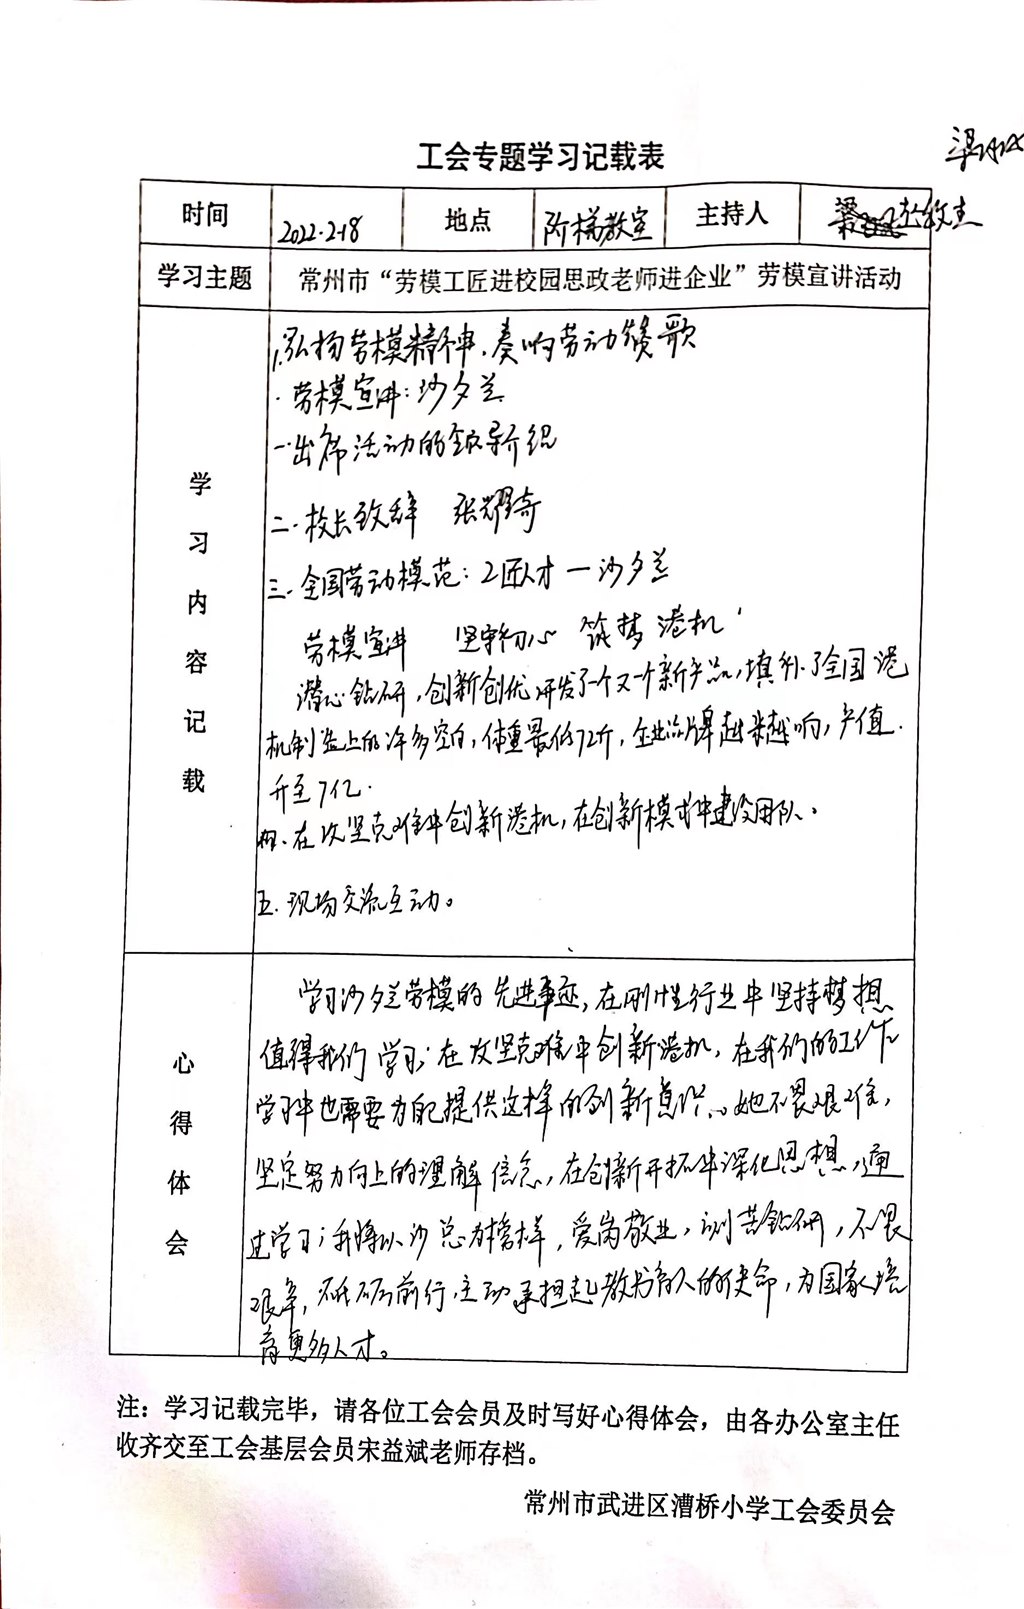 工会专题学习记载表
时间 2022.2.18 地点 阶梯教室 主持人
学习主题 常州市“劳模工匠进校园思政老师进企业”劳模宣讲活动
学习内容记载
1.弘扬劳模精神、奏响劳动赞歌
·劳模宣讲:沙夕兰
一.出席活动的领导介绍
二.校长致辞 张耀奇
三.全国劳动模范:工匠人才—沙夕兰
劳模宣讲 坚守初心 筑梦港机
潜心钻研,创新创优研发了一个又一个新产品,填补了全国港
机制造上的许多空白,体重最低72斤,企业品牌越来越响,产值
升至7亿.
四.在攻坚克难中创新港机,在创新模式中建设团队。
五.现场交流互动。
心得体会
学习沙夕兰劳模的先进事迹,在刚性行业中坚持梦想
值得我们学习;在攻坚克难中创新港机,在我们的工作
学习中也需要为自己提供这样的创新意识。她不畏艰难,
坚定努力向上的理解信念,在创新开拓中深化思想,通
过学习;我将以沙总为榜样,爱岗敬业,刻苦钻研,不畏
艰辛,砥砺前行,主动承担起教书育人的使命,为国家培
育更多人才。
注：学习记载完毕，请各位工会会员及时写好心得体会，由各办公室主任
收齐交至工会基层会员宋益斌老师存档。
常州市武进区漕桥小学工会委员会